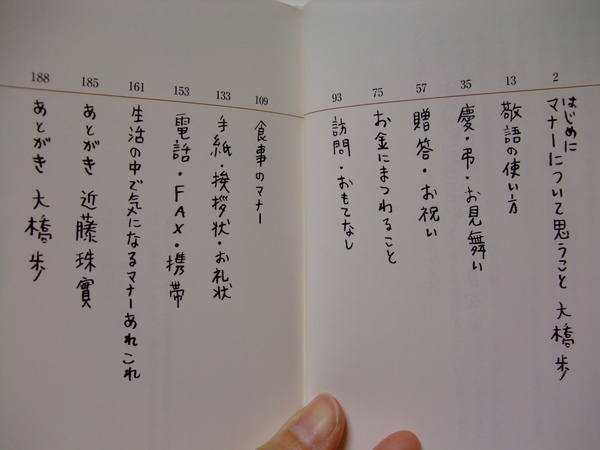 2
はじめに
マナーについて思うこと 大橋歩
13
敬語の使い方
35
慶・弔・お見舞い
57
贈答・お祝い
75
お金にまつわること
93
訪問・おもてなし
109
食事のマナー
133
手紙・挨拶状・お礼状
153
電話・FAX・携帯
161
生活の中で気になるマナーあれこれ
185
あとがき 近藤珠實
188
あとがき 大橋歩